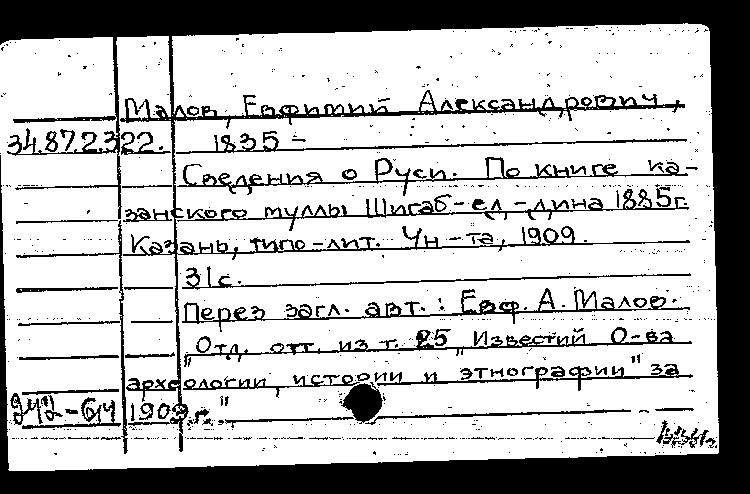 Малов, Евфимий Александрович,
34.87.2.322. 1835 -
Сведения о Руси. По книге ка-
занского муллы Шигаб-ед-дина 1885г.
Казань, типо-лит. Ун-та, 1909.
31с.
Перез загл. авт.: Евф. А. Малов.
"Отд. отт. из т. 25 "Известий О-ва
археологии, истории и этнографии" за
1909 г."